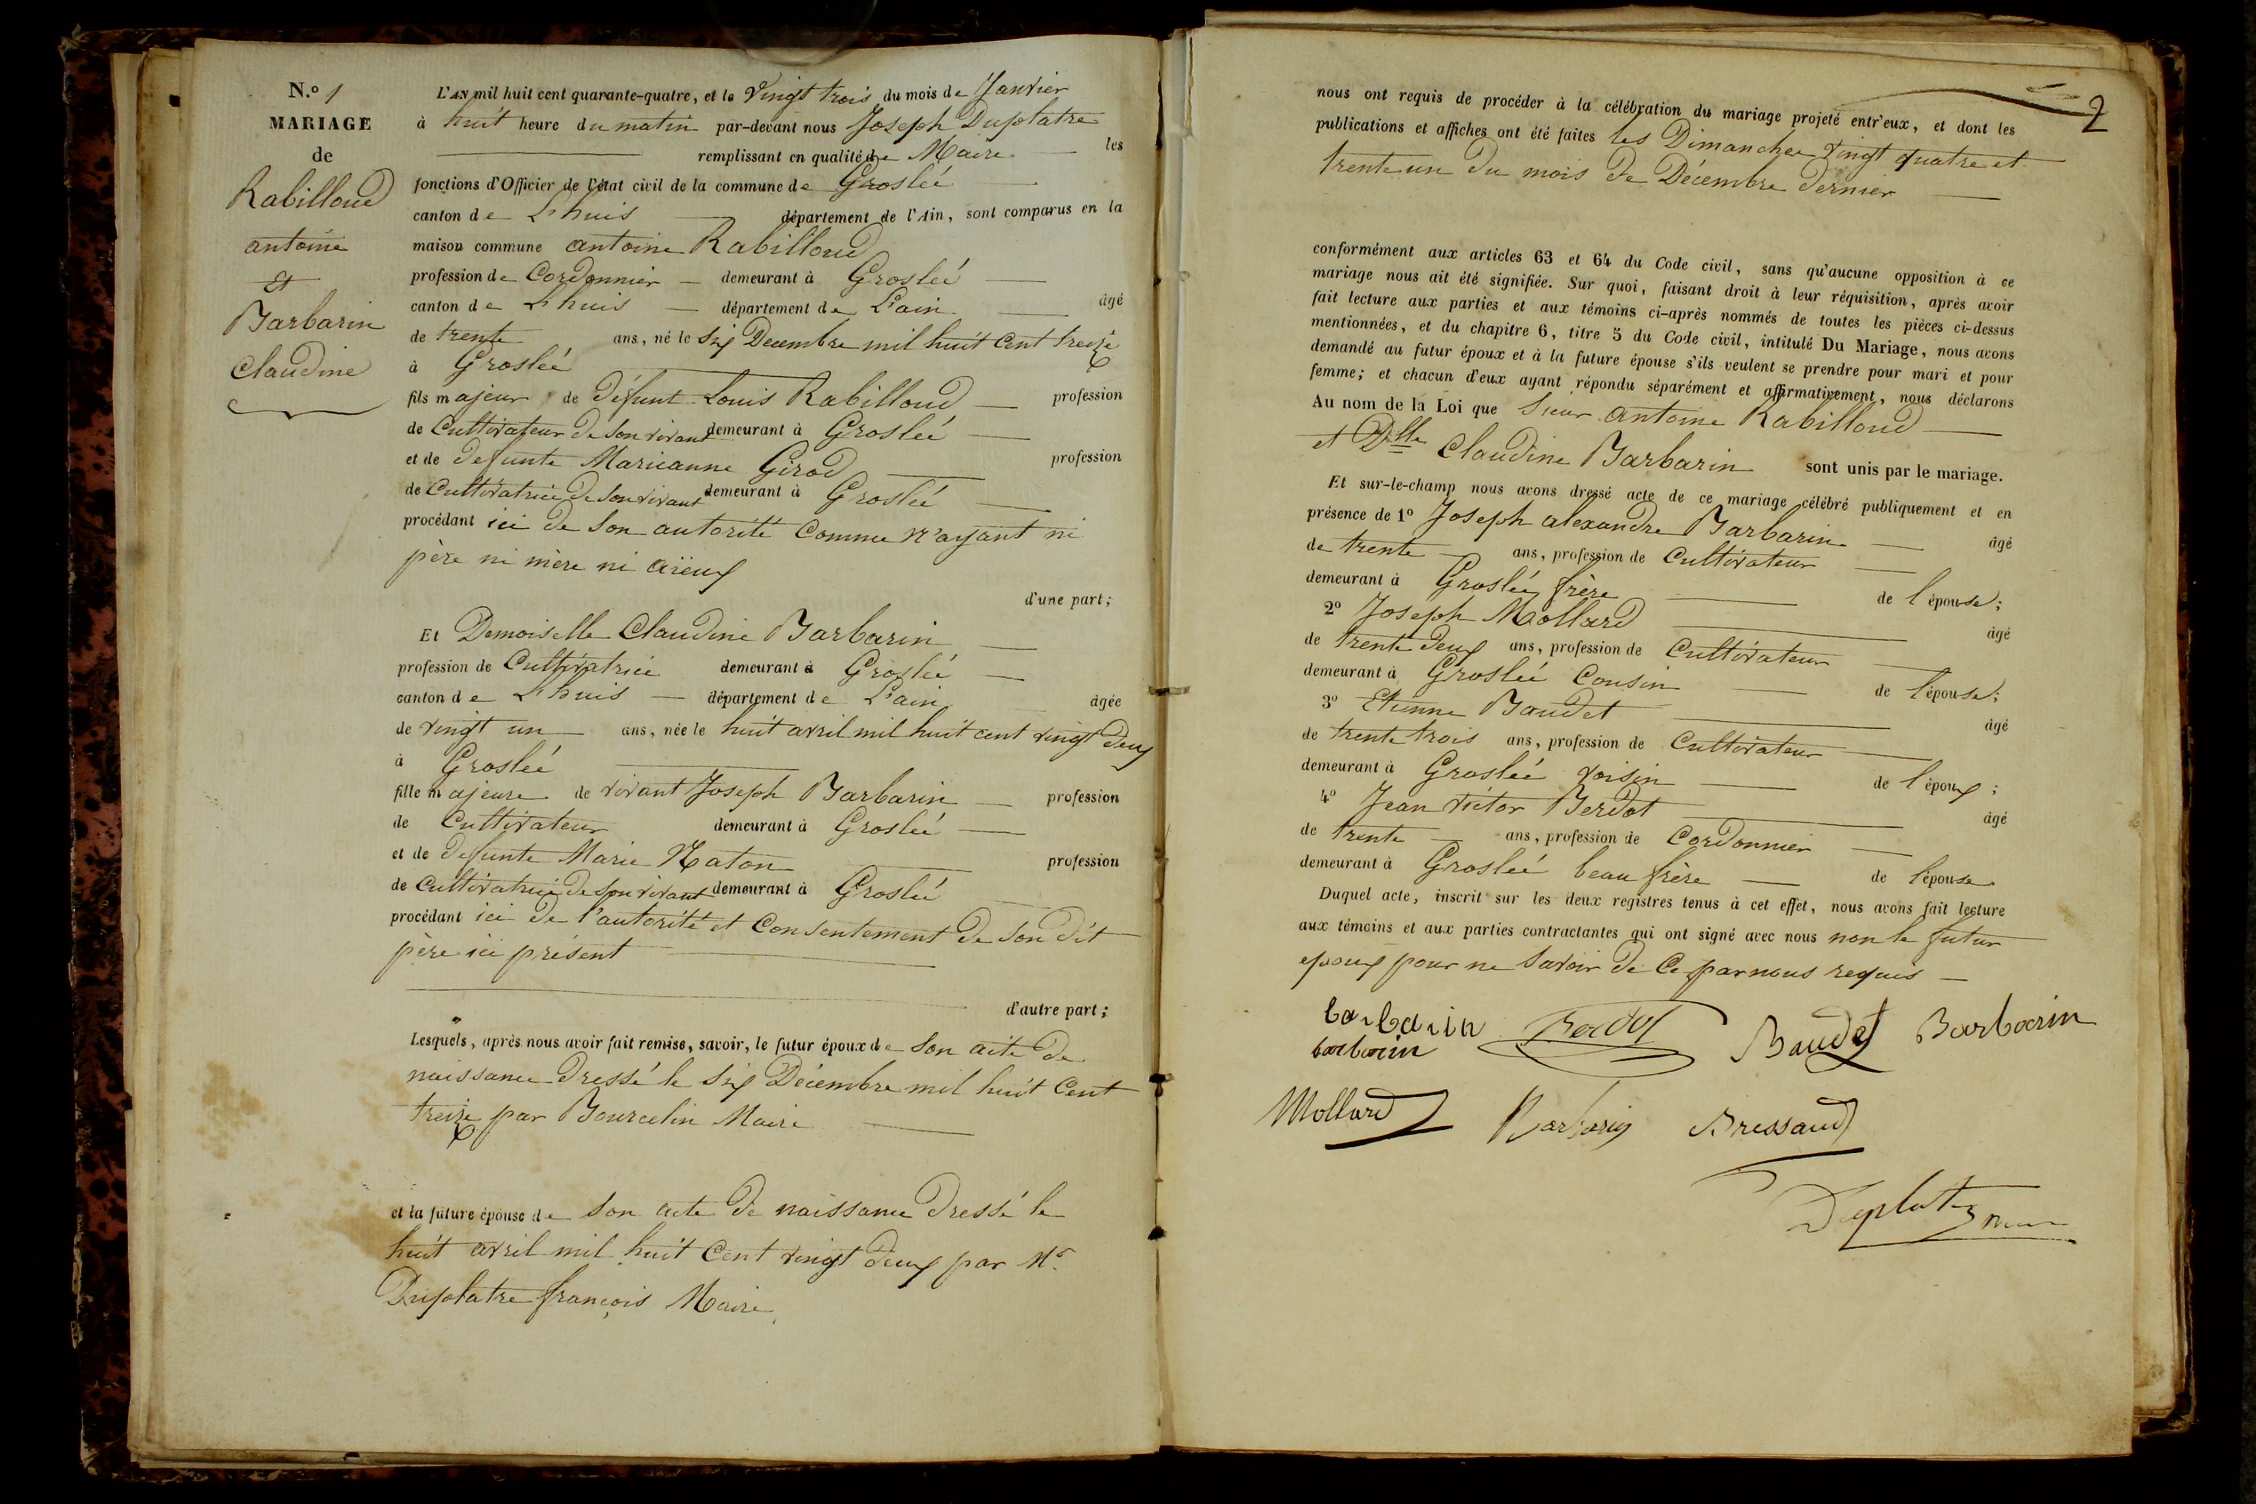 N.o 1
MARIAGE
de
Rabilloud
antoine
et
Barbarin
Claudine
L'AN mil huit cent quarante-quatre, et le vingt trois du mois de Janvier
à huit heure du matin par-devant nous Joseph Duplatre
remplissant en qualité de Maire les
fonctions d'Officier de l'état civil de la commune de Groslée
canton de L'huis département de l'Ain, sont comparus en la
maison commune antoine Rabilloud
profession de Cordonnier demeurant à Groslée
canton de L'huis département de L'ain âgé
de trente ans, né le six Decembre mil huit cent treize
à Groslée
fils majeur de défunt Louis Rabilloud profession
de Cultivateur de son vivant demeurant à Groslée
et de defunte Marieanne Girod profession
de Cultivatrice de son vivant demeurant à Groslée
procédant ici de son autorité comme n'ayant ni
père ni mère ni aïeux
d'une part;
Et Demoiselle Claudine Barbarin
profession de Cultivatrice demeurant à Groslée
canton de L'huis département de L'ain âgée
de vingt un ans, née le huit avril mil huit cent vingt deux
à Groslée
fille majeure de vivant Joseph Barbarin profession
de Cultivateur demeurant à Groslée
et de defunte Marie Naton profession
de Cultivatrice de son vivant demeurant à Groslée
procédant ici de l'autorité et consentement de son dit
père ici présent
d'autre part;
Lesquels, après nous avoir fait remise, savoir, le futur époux de son acte de
naissance dressé le six Décembre mil huit cent
treize par Bourcelin Maire
et la future épouse de son acte de naissance dressé le
huit avril mil huit cent vingt deux par Mr
Duplatre françois Maire
2
nous ont requis de procéder à la célébration du mariage projeté entr'eux, et dont les
publications et affiches ont été faites les Dimanches vingt quatre et
trente un du mois de Décembre dernier
conformément aux articles 63 et 64 du Code civil, sans qu'aucune opposition à ce
mariage nous ait été signifiée. Sur quoi, faisant droit à leur réquisition, après avoir
fait lecture aux parties et aux témoins ci-après nommés de toutes les pièces ci-dessus
mentionnées, et du chapitre 6, titre 5 du Code civil, intitulé Du Mariage, nous avons
demandé au futur époux et à la future épouse s'ils veulent se prendre pour mari et pour
femme; et chacun d'eux ayant répondu séparément et affirmativement, nous déclarons
Au nom de la Loi que Sieur antoine Rabilloud
et Dlle Claudine Barbarin sont unis par le mariage.
Et sur-le-champ nous avons dressé acte de ce mariage célébré publiquement et en
présence de 1o Joseph alexandre Barbarin âgé
de trente ans, profession de Cultivateur
demeurant à Groslée frère de l'épouse;
2o Joseph Mollard âgé
de trente deux ans, profession de Cultivateur
demeurant à Groslée Cousin de l'épouse;
3o Etienne Baudet âgé
de trente trois ans, profession de Cultivateur
demeurant à Groslée voisin de l'époux;
4o Jean victor Berdot âgé
de trente ans, profession de Cordonnier
demeurant à Groslée beau frère de l'épouse
Duquel acte, inscrit sur les deux registres tenus à cet effet, nous avons fait lecture
aux témoins et aux parties contractantes qui ont signé avec nous non le futur
epoux pour ne savoir de ce par nous requis
barbarin Berdot Baudet Barbarin
barbarin
Mollard Barbarin Bressaud
Duplatre